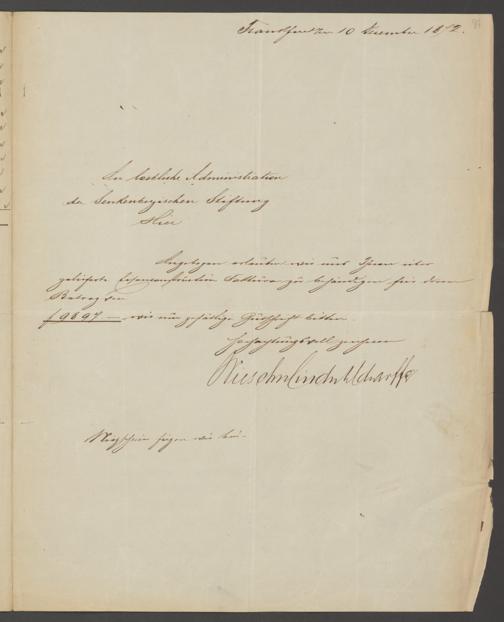 Frankfurt den 10 Dezember 18
An löbliche Administration
der Senkenbergischen Stiftung
Hier
Angebogen erlauben wir uns Ihnen über
gelieferte Eisenconstruction Factura zu behändigen für deren
Betrag von
f 9697 — wir um gefällige Gutschrift bitten.
Hochachtungsvoll zeichnen
Wiegschein fügen wir bei.